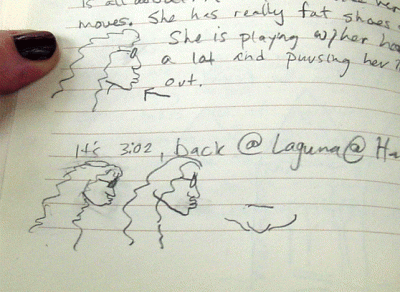 moves. She has really fat shoes.
She is playing w/her
a lot and pursing her
out.
It's 3:02, back @ Laguna @